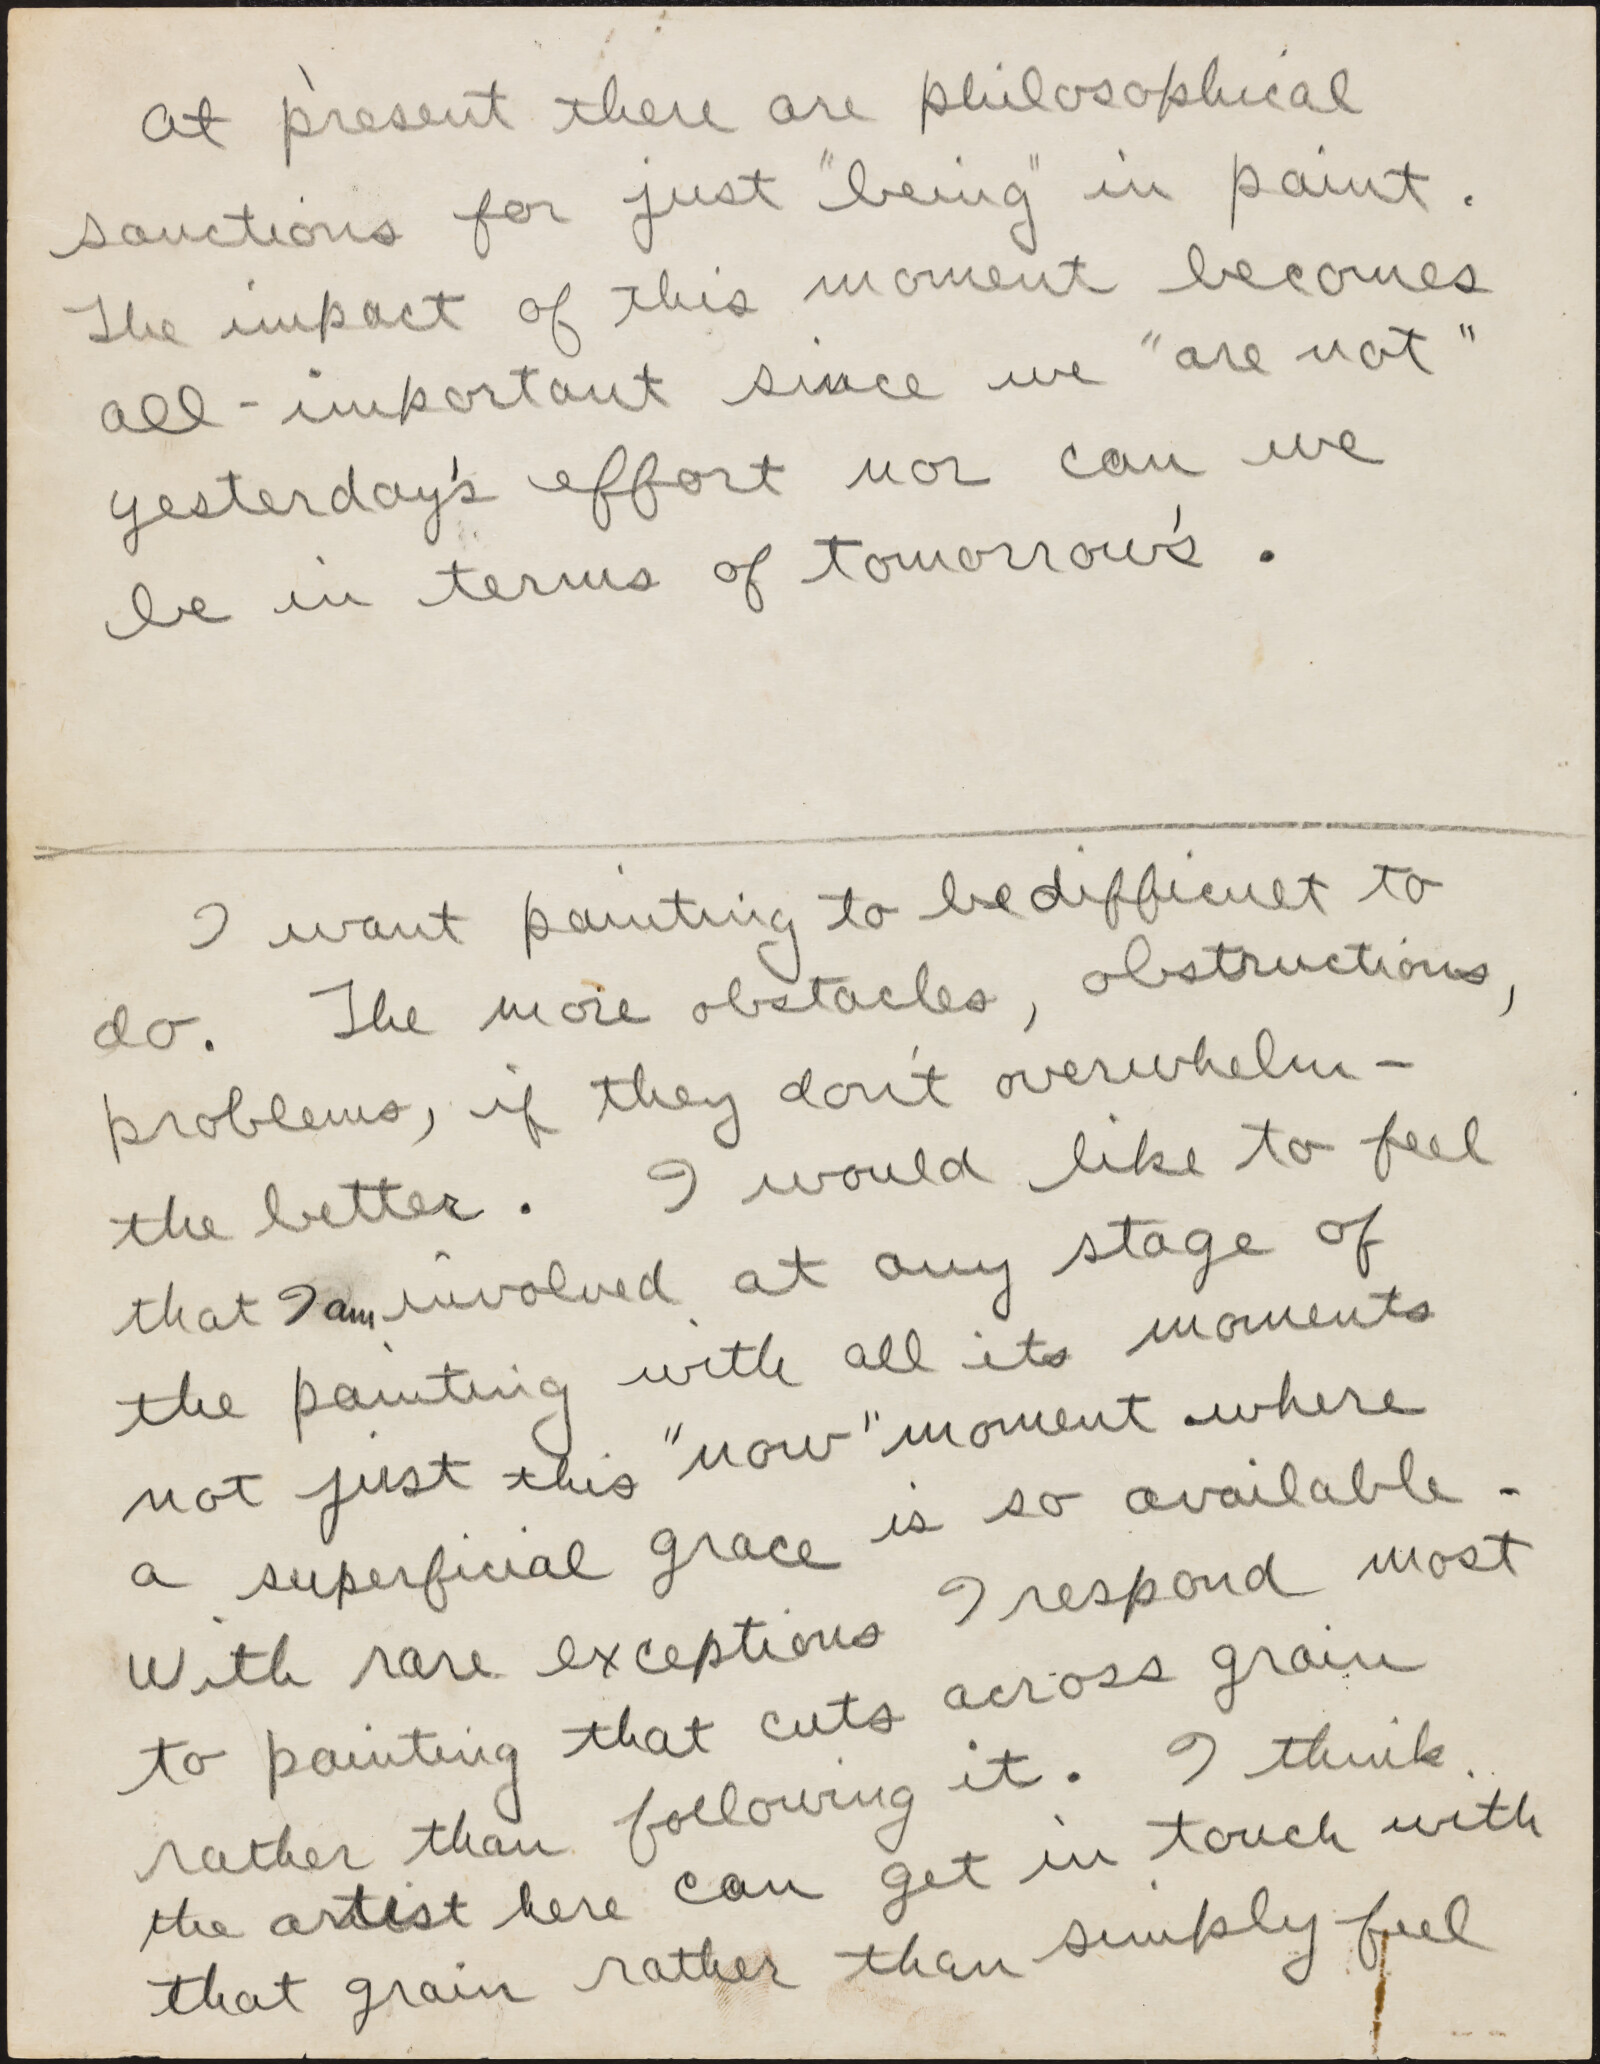 At present there are philosophical
sanctions for just "being" in paint.
The impact of this moment becomes
all-important since we "are not"
yesterday's effort nor can we
be in terms of tomorrow's.
I want painting to be difficult to
do. The more obstacles, obstructions,
problems, if they don't overwhelm -
the better. I would like to feel
that I am involved at any stage of
the painting with all its moments
not just this "now" moment where
a superficial grace is so available -
With rare exceptions I respond most
to painting that cuts across grain
rather than following it. I think
the artist here can get in touch with
that grain rather than simply feel